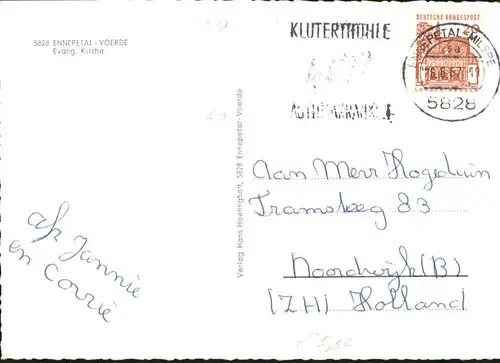 5828 ENNEPETAL - VOERDE
Evang. Kirche
KLUTERTHÖHLE
DEUTSCHE BUNDESPOST
ENNEPETAL-MILSPE
5828
Verlag Hans Hoellinghoff, 5828 Ennepetal-Voerde
Aan Merr Hogeduin
Tramsteeg 83
Noordwijk (B)
(ZH) Holland
afz Jannie
en Corrie